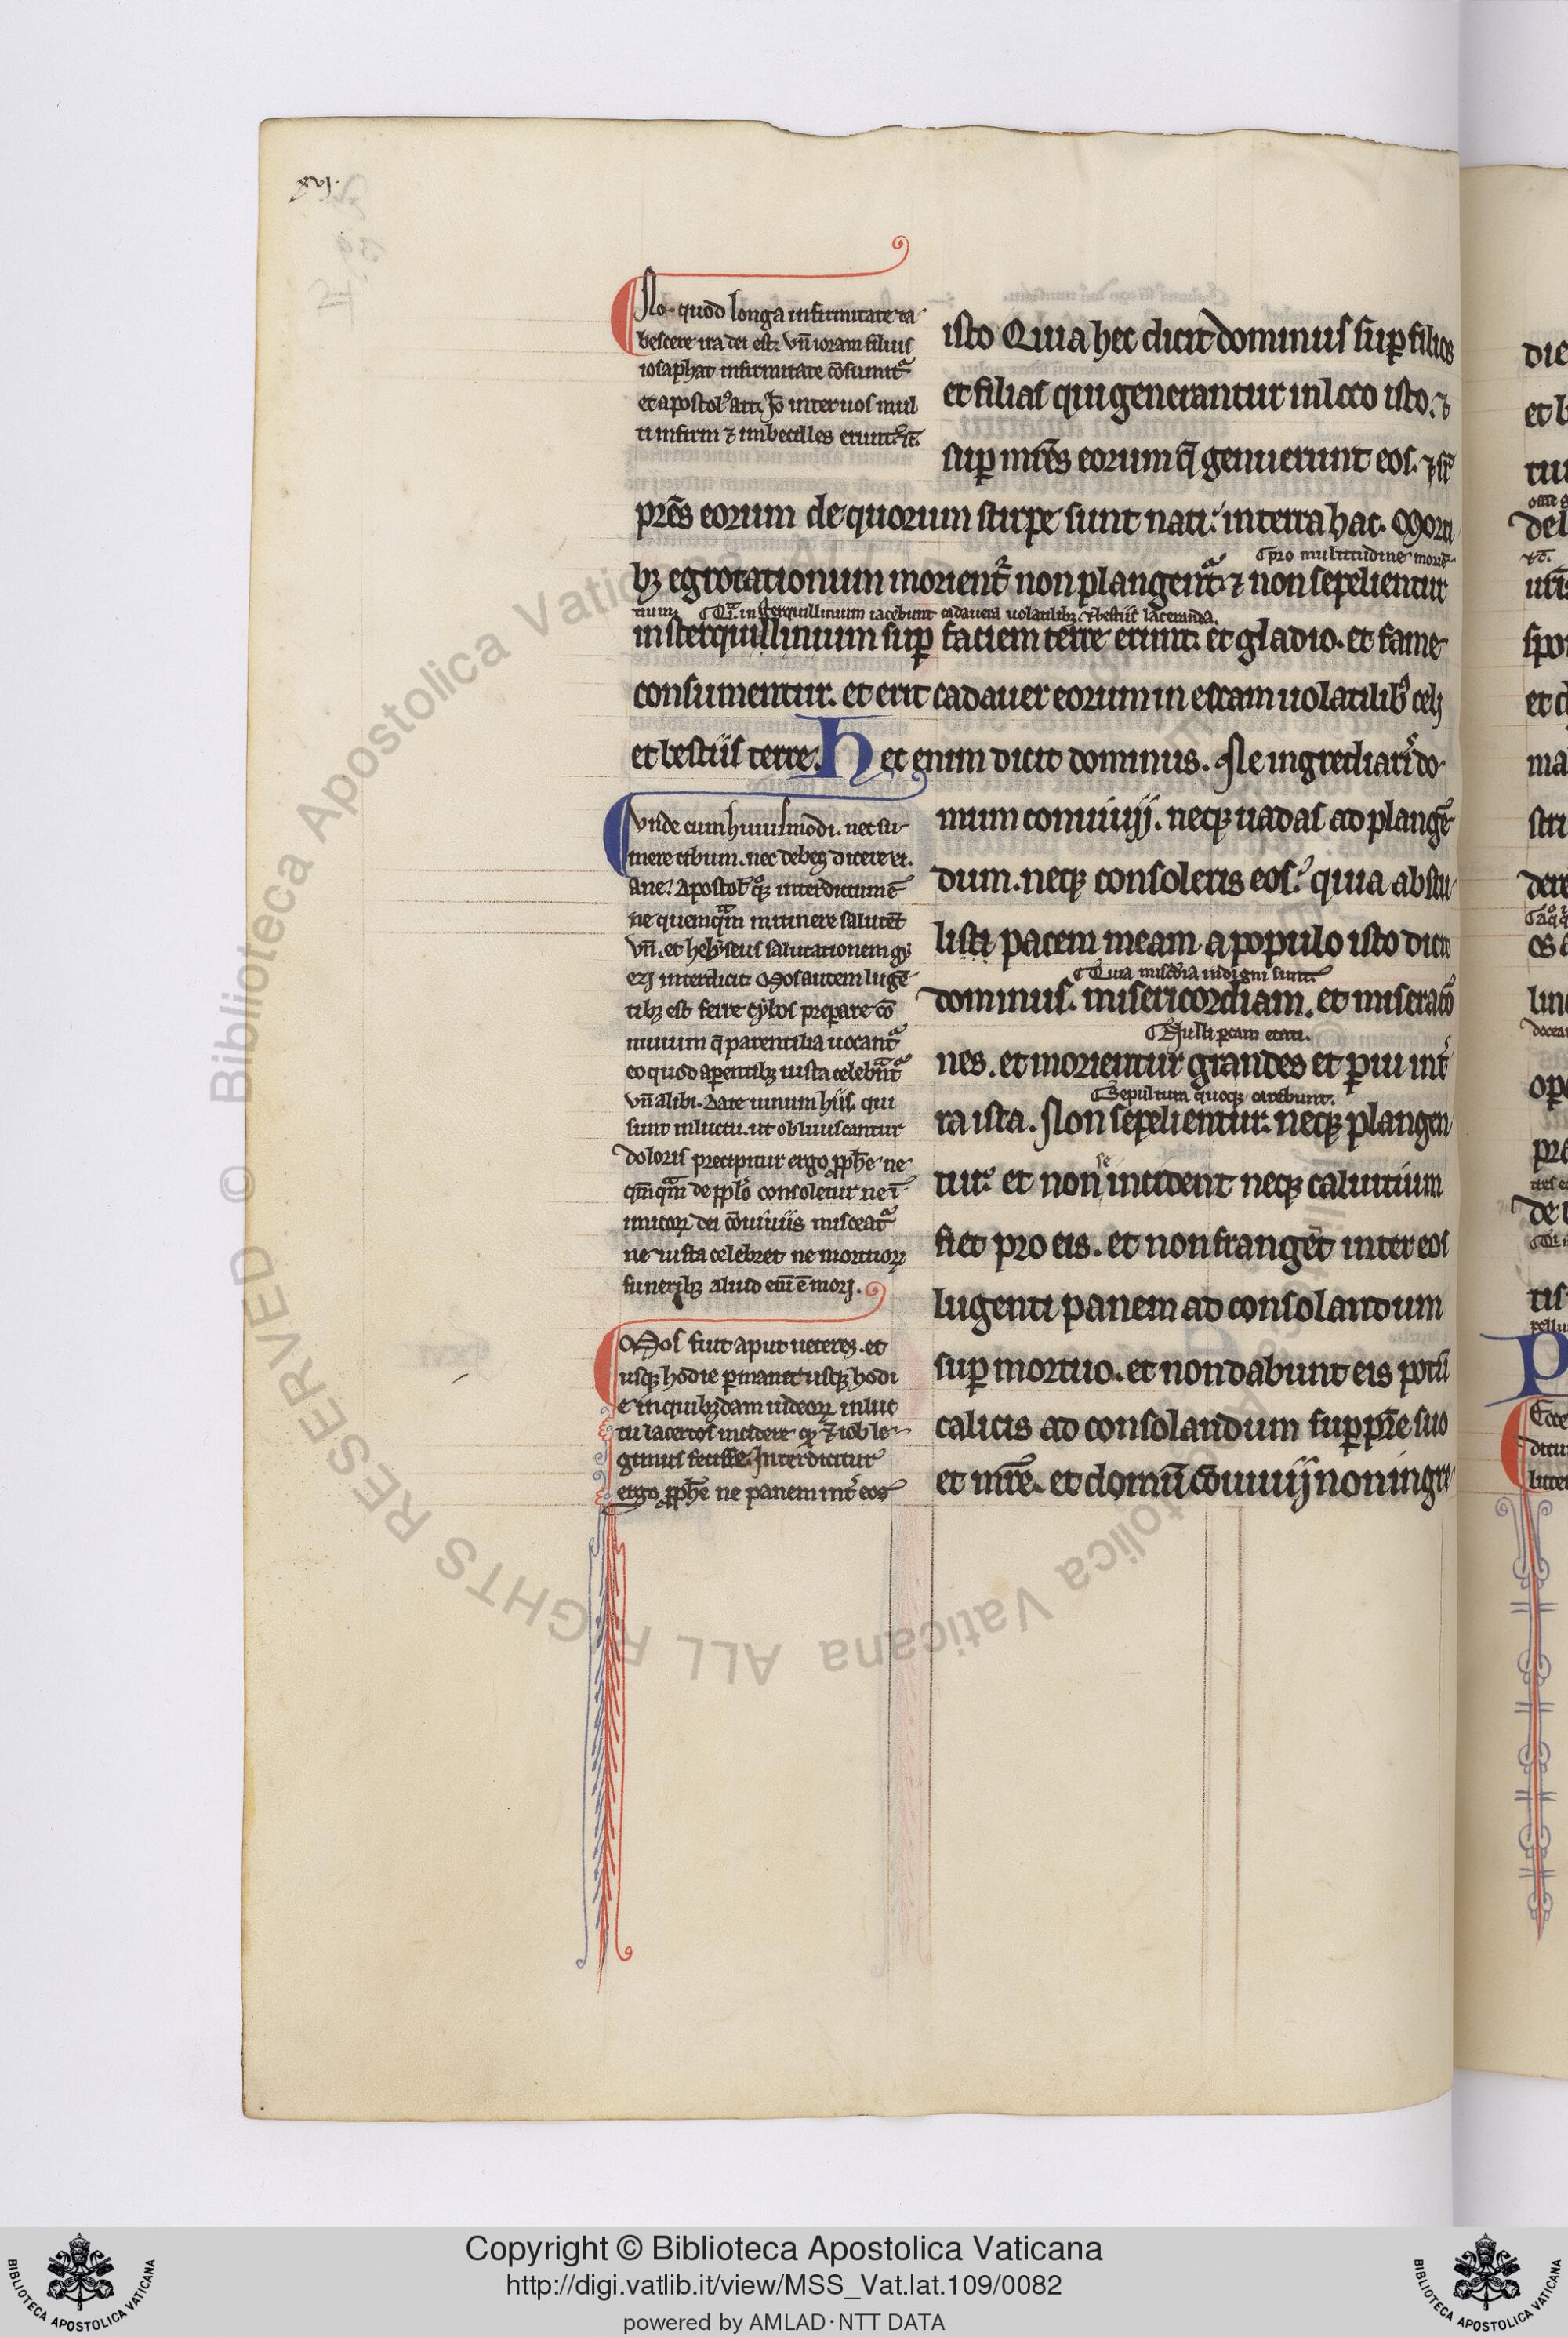 xvj.
No quod longa infirmitate ta
bescere ira dei est. vn̄ ioram filius
iosaphat infirmitate cōsumitᷣ
et apostolꝰ ait. Jō inter uos mul
ti infirmi ⁊ imbecilles erunt. ⁊c̄.
isto Quia hec dicit dominus suꝑ filios
et filias qui generantur in loco isto. ⁊
suꝑ mr̄es eorum q̄ genuerunt eos. ⁊ sr̄
pr̄es eorum de quorum stirpe sunt nati. in terra hac. Morti
⁋pro multitudine morien
bꝫ egrotationum morient᷑ non plangent᷑. ⁊ non sepelientur
tium. ⁋Qͣ. in sterquillinium iacebunt cadauera uolatilibꝫ ⁊ bestiis laceranda.
in sterquillinium suꝑ faciem terre erunt. et gladio. et fame
consumentur. et erit cadauer eorum in escam uolatilibꝰ celi
et bestiis terre. Hec enim dicit dominus. Ne ingrediarᷣ do
mum conuiuij. neqꝫ uadas ad plangē
dum. neqꝫ consoleris eos. quia abstu
listi pacem meam a populo isto dicit
⁋Quia misc̄dia indigni sunt.
dominus. misericordiam. et miseracō
⁋Nulli ꝑcam etati.
nes. et morientur grandes et ꝑui in t̄
⁋Sepultura quoqꝫ carebunt.
ra ista. Non sepelientur. neqꝫ plangen
se
tur. et non incident neqꝫ caluitium
fiet pro eis. et non frangēt inter eos
lugenti panem ad consolandum
suꝑ mortuo. et non dabunt eis potū
calicis ad consolandum suꝑ pr̄e suo
et mr̄e. et domū cōuiuij non ingre
vnde cum huiusmodi. nec su
mere cibum. nec debes dicere ei.
aue. Apostolꝰ qꝫ interdictum ē
ne quemqͣm mittinere salutēt
vn̄. et helyseus salutationem gy
ezi interdicit. Mos autem lugē
tibꝫ est ferre cybos preparare cō
uiuium q̄ parentilia uocantᷣ
eo quod aꝑentibꝫ iusta celebrn̄tᷣ
vn̄ alibi. Date uinum hiis. qui
sunt in luctu. ut obliuiscantur
doloris precipitur ergo ꝓph̄e ne
qm̄qͣm de pplō consoletur ne ī
imicoꝝ dei cōuiuiis misceatᷣ
ne iusta celebret ne mortuoꝝ
funeribꝫ aliud eni ē mori.
Mos fuit aput ueteres. et
usqꝫ hodie ꝑmanet usqꝫ hodi
e in quibꝫdam iudeoꝝ in luc
tu lacertos incidere qꝫ ⁊ iob le
gimus fecisse. Interdicitur
ergo ꝓph̄e ne panem int̄ eos
Copyright © Biblioteca Apostolica Vaticana
http://digi.vatlib.it/view/MSS_Vat.lat.109/0082
powered by AMLAD·NTT DATA
BIBLIOTECA APOSTOLICA VATICANA
BIBLIOTECA APOSTOLICA VATICANA
© Biblioteca Apostolica Vaticana ALL RIGHTS RESERVED